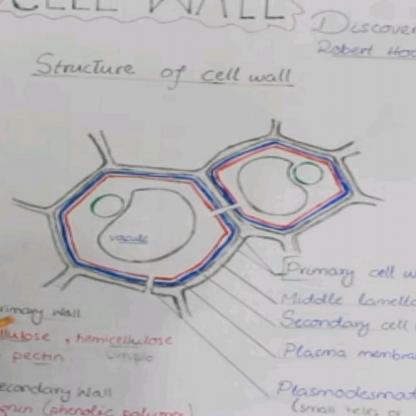 CELL WALL
Discover
Robert Hoo
Structure of cell wall
vacuole
Primary cell w
Middle lamella
Secondary cell
Plasma membra
Plasmodesmod
(small
rimary Wall
llulose , hemicellulose
pectin
econdary Wall
(phenolic polymer)